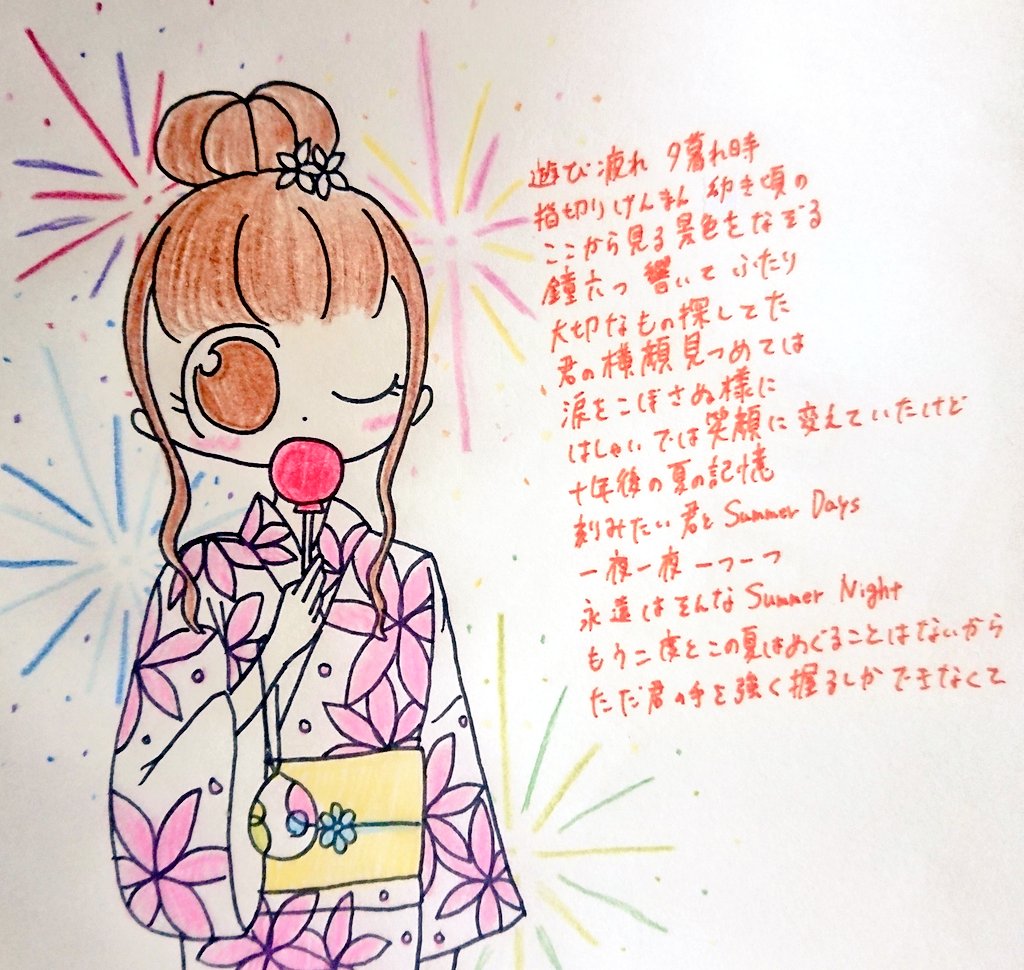 遊び疲れ 夕暮れ時
指切りげんまん 幼き頃の
ここから見る景色をなぞる
鐘六つ 響いて ふたり
大切なもの探してた
君の横顔見つめては
涙をこぼさぬ様に
はしゃいでは笑顔に変えていたけど
十年後の夏の記憶
刻みたい 君と Summer Days
一夜一夜 一つ一つ
永遠はそんな Summer Night
もう二度とこの夏はめぐることはないから
ただ君の手を強く握るしかできなくて